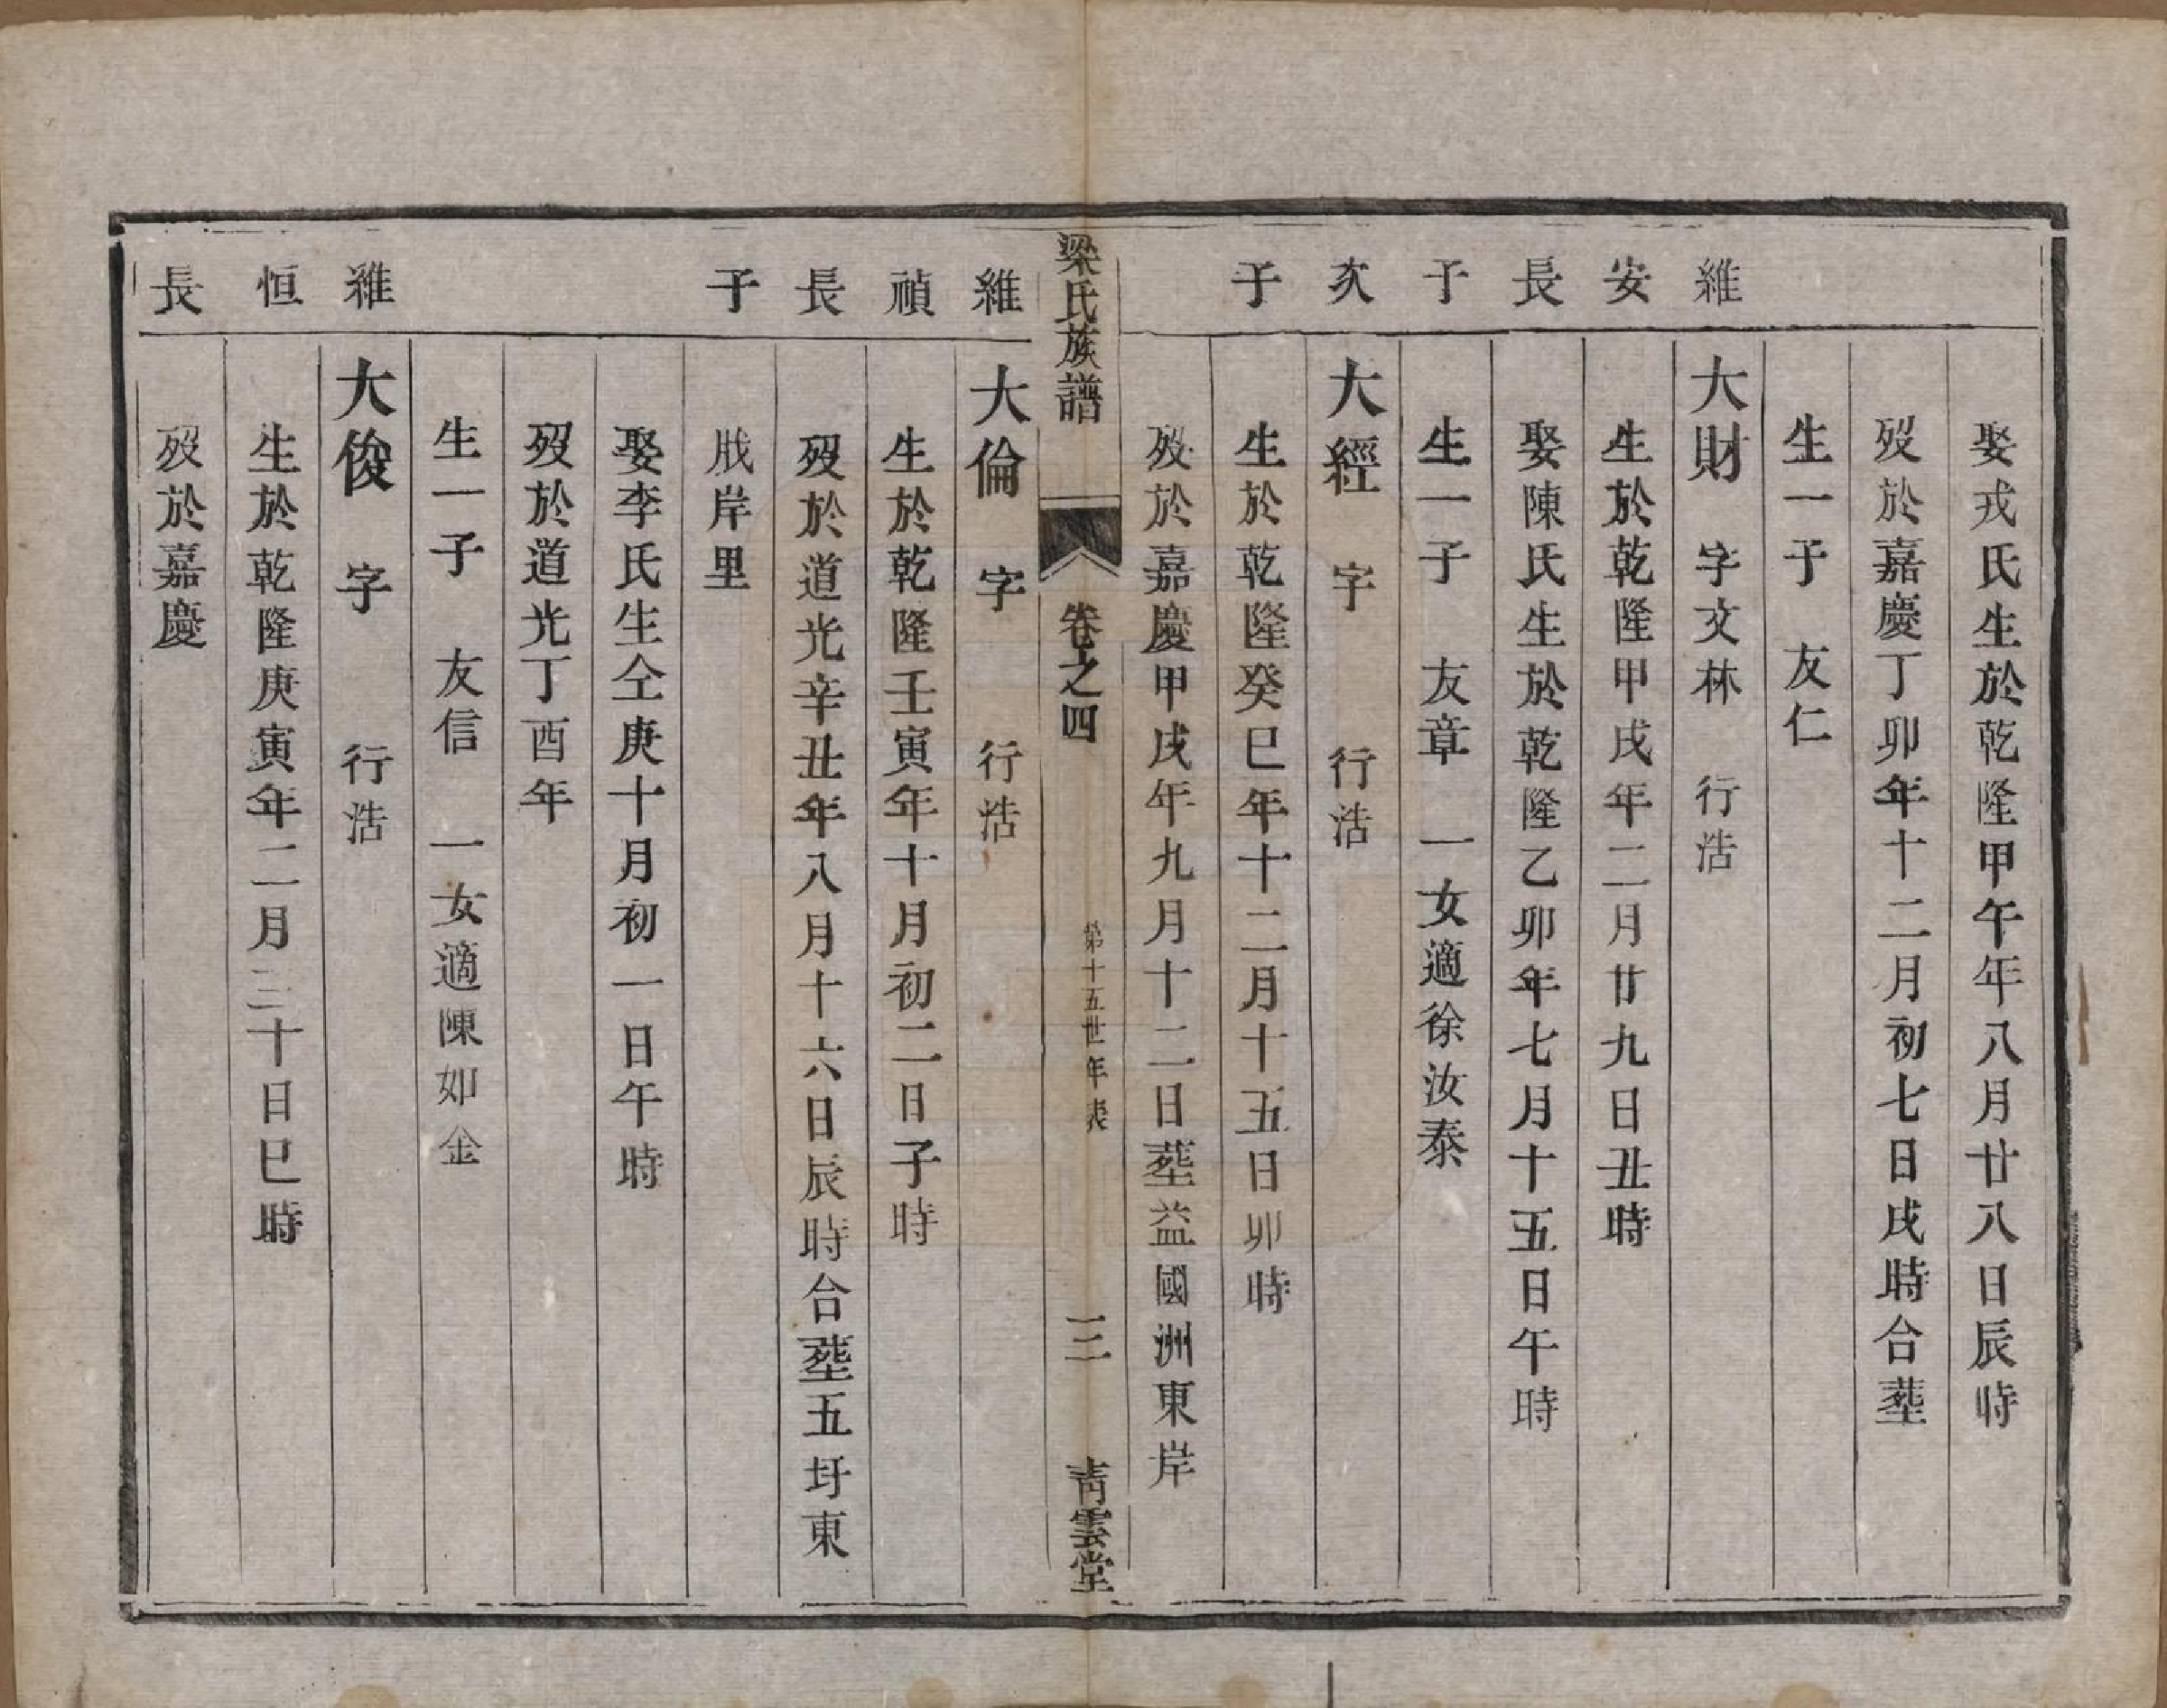 娶戎氏生於乾隆甲午年八月廿八日辰時
歿於嘉慶丁卯年十二月初七日戌時合塟
生一子　友仁
維安長子
大財　字文林　行浩
生於乾隆甲戌年二月廿九日丑時
娶陳氏生於乾隆乙卯年七月十五日午時
生一子　友章　一女適徐汝泰
次子
大經　字　行浩
生於乾隆癸巳年十二月十五日卯時
歿於嘉慶甲戌年九月十二日塟益國洲東岸
梁氏族譜　卷之四　第十五世年表　三　靑雲堂
維禎長子
大倫　字　行浩
生於乾隆壬寅年十月初二日子時
歿於道光辛丑年八月十六日辰時合塟五圩東
戕岸里
娶李氏生仝庚十月初一日午時
歿於道光丁酉年
生一子　友信　一女適陳如金
維恒長
大俊　字　行浩
生於乾隆庚寅年二月三十日巳時
歿於嘉慶